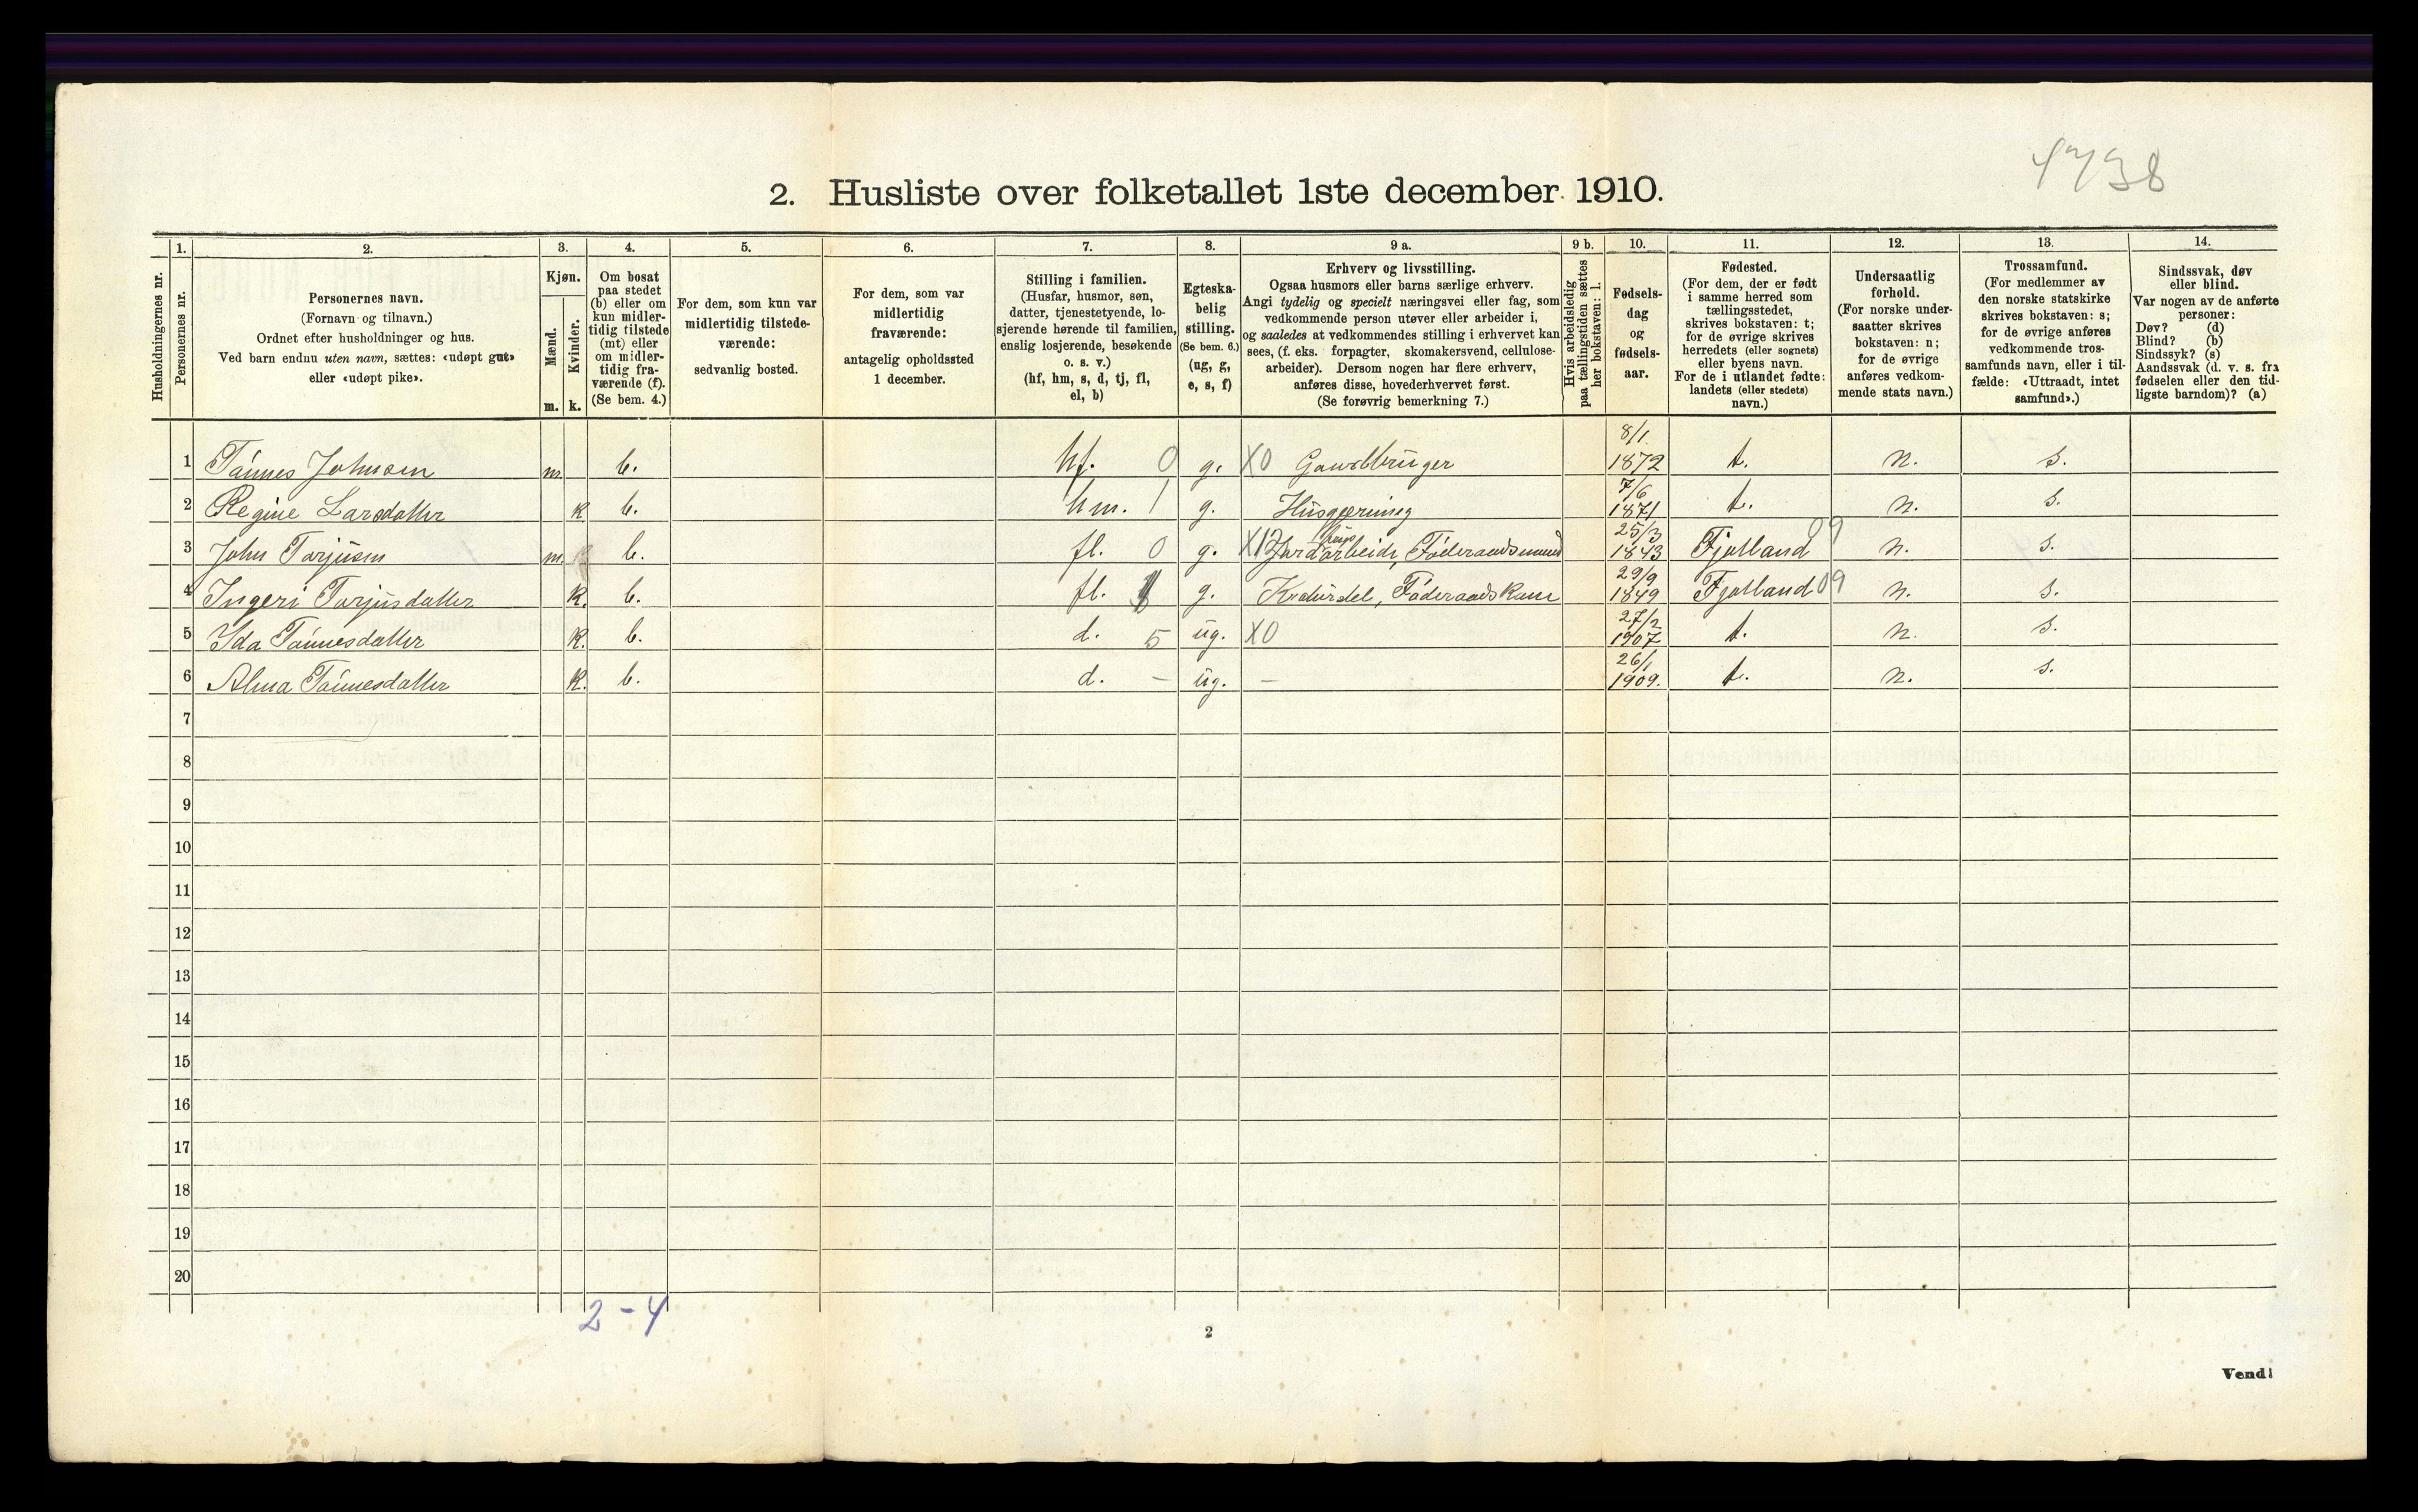 4738
2. Husliste over folketallet 1ste december 1910.
1. 2. 3. 4. 5. 6. 7. 8. 9 a. 9 b. 10. 11. 12. 13. 14.
Husholdningernes nr.
Personernes nr.
Personernes navn.
(Fornavn og tilnavn.)
Ordnet efter husholdninger og hus.
Ved barn endnu uten navn, sættes: «udøpt gut»
eller «udøpt pike».
Kjøn.
Mænd.
Kvinder.
m. k.
Om bosat
paa stedet
(b) eller om
kun midler-
tidig tilstede
(mt) eller
om midler-
tidig fra-
værende (f).
(Se bem. 4.)
For dem, som kun var
midlertidig tilstede-
værende:
sedvanlig bosted.
For dem, som var
midlertidig
fraværende:
antagelig opholdssted
1 december.
Stilling i familien.
(Husfar, husmor, søn,
datter, tjenestetyende, lo-
sjerende hørende til familien,
enslig losjerende, besøkende
o. s. v.)
(hf, hm, s, d, tj, fl,
el, b)
Egteska-
belig
stilling.
(Se bem. 6.)
(ug, g,
e, s, f)
Erhverv og livsstilling.
Ogsaa husmors eller barns særlige erhverv.
Angi tydelig og specielt næringsvei eller fag, som
vedkommende person utøver eller arbeider i,
og saaledes at vedkommendes stilling i erhvervet kan
sees, (f. eks. forpagter, skomakersvend, cellulose-
arbeider). Dersom nogen har flere erhverv,
anføres disse, hovederhvervet først.
(Se forøvrig bemerkning 7.)
Hvis arbeidsledig
paa tællingstiden sættes
her bokstaven: l.
Fødsels-
dag
og
fødsels-
aar.
Fødested.
(For dem, der er født
i samme herred som
tællingsstedet,
skrives bokstaven: t;
for de øvrige skrives
herredets (eller sognets)
eller byens navn.
For de i utlandet fødte:
landets (eller stedets)
navn.)
Undersaatlig
forhold.
(For norske under-
saatter skrives
bokstaven: n;
for de øvrige
anføres vedkom-
mende stats navn.)
Trossamfund.
(For medlemmer av
den norske statskirke
skrives bokstaven: s;
for de øvrige anføres
vedkommende tros-
samfunds navn, eller i til-
fælde: «Uttraadt, intet
samfund».)
Sindssvak, døv
eller blind.
Var nogen av de anførte
personer:
Døv? (d)
Blind? (b)
Sindssyk? (s)
Aandssvak (d. v. s. fra
fødselen eller den tid-
ligste barndom)? (a)
1 Tønnes Johnsen m. b. hf. 0 g. X0 Gaardbruger 8/1 1872 t. n. s.
2 Regine Larsdatter k b. hm. 1 g. Husgjerning 7/6 1871 t. n. s.
3 John Torjusen m. b. fl. 0 g. X12 Jordarbeide, Føderaadsmand 25/3 1843 Fjotland 09 n. s.
4 Ingeri Torjusdatter k. b. fl. g. Kreaturstel, Føderaadskone 29/9 1849 Fjotland 09 n. s.
5 Ida Tønnesdatter k. b. d. 5 ug. X0 27/2 1907 t. n. s.
6 Alma Tønnesdatter k. b. d. – ug. – 26/1 1909. t. n. s.
7
8
9
10
11
12
13
14
15
16
17
18
19
20
2-4
2
Vend!